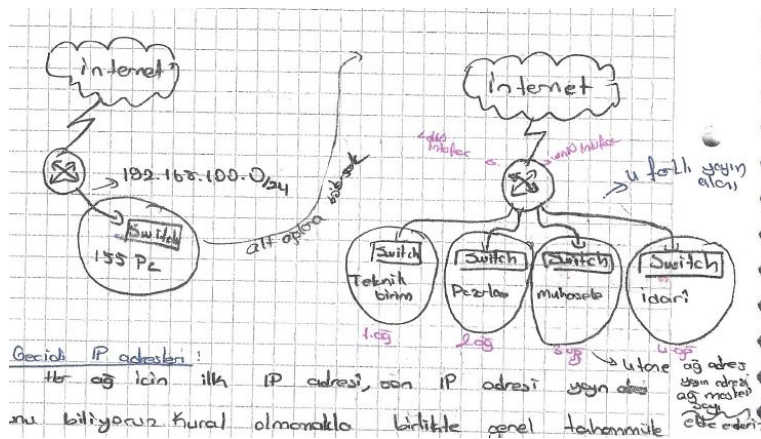 internet
192.168.100.0/24
Switch
155 Pc
alt ağlara
internet
4 farklı yayın
alanı
Switch
Teknik
birim
Switch
Switch
muhasebe
Switch
idari
1.ağ
2.ağ
4.ağ
→ 4 tane ağ adresi
yayın adresi
ağ maskesi
elde ederiz
Geçidi IP adresleri :
Her ağ için ilk IP adresi, son IP adresi yayın
biliyoruz. Kural olmamakla birlikte genel